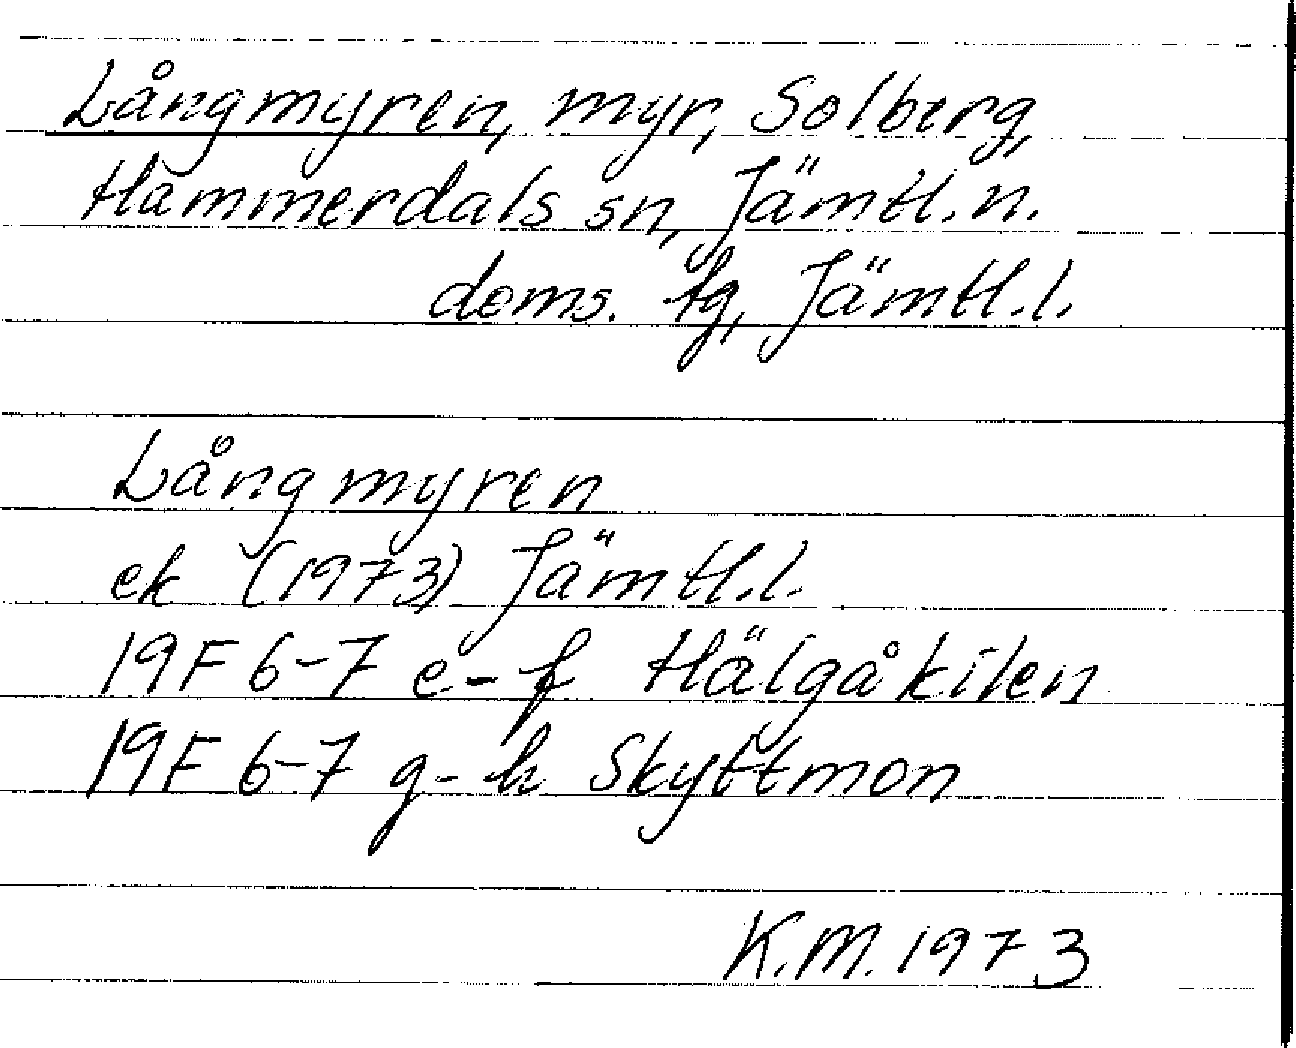 Långmyren, myr, Solberg,
Hammerdals sn, Jämtl. n.
doms. tg, Jämtl. l.
Långmyren
ek (1973) Jämtl. l.
19F 6-7 e-f Hälgåkilen
19F 6-7 g-h Skyttmon
K.M. 1973